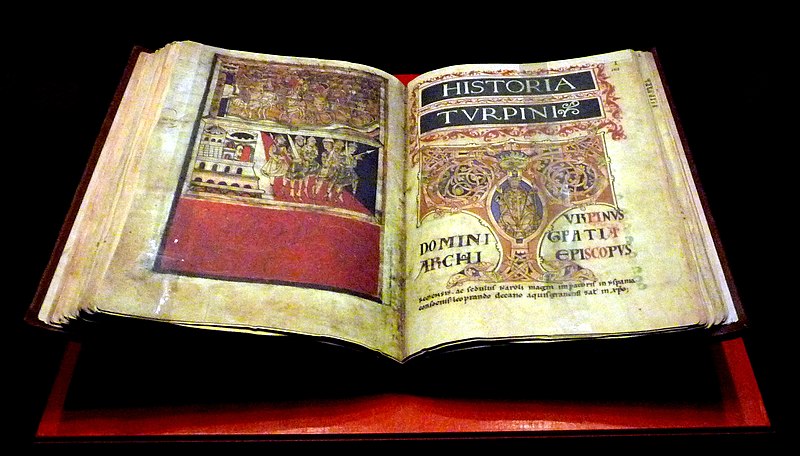 HISTORIA
TVRPINI
VRPINVS
DOMINI GRATIA
ARCHI EPISCOPVS
ac sedulus Karoli magni impatoris in yspania
consocius leoprando decano aquisgranensi salt in xpo;